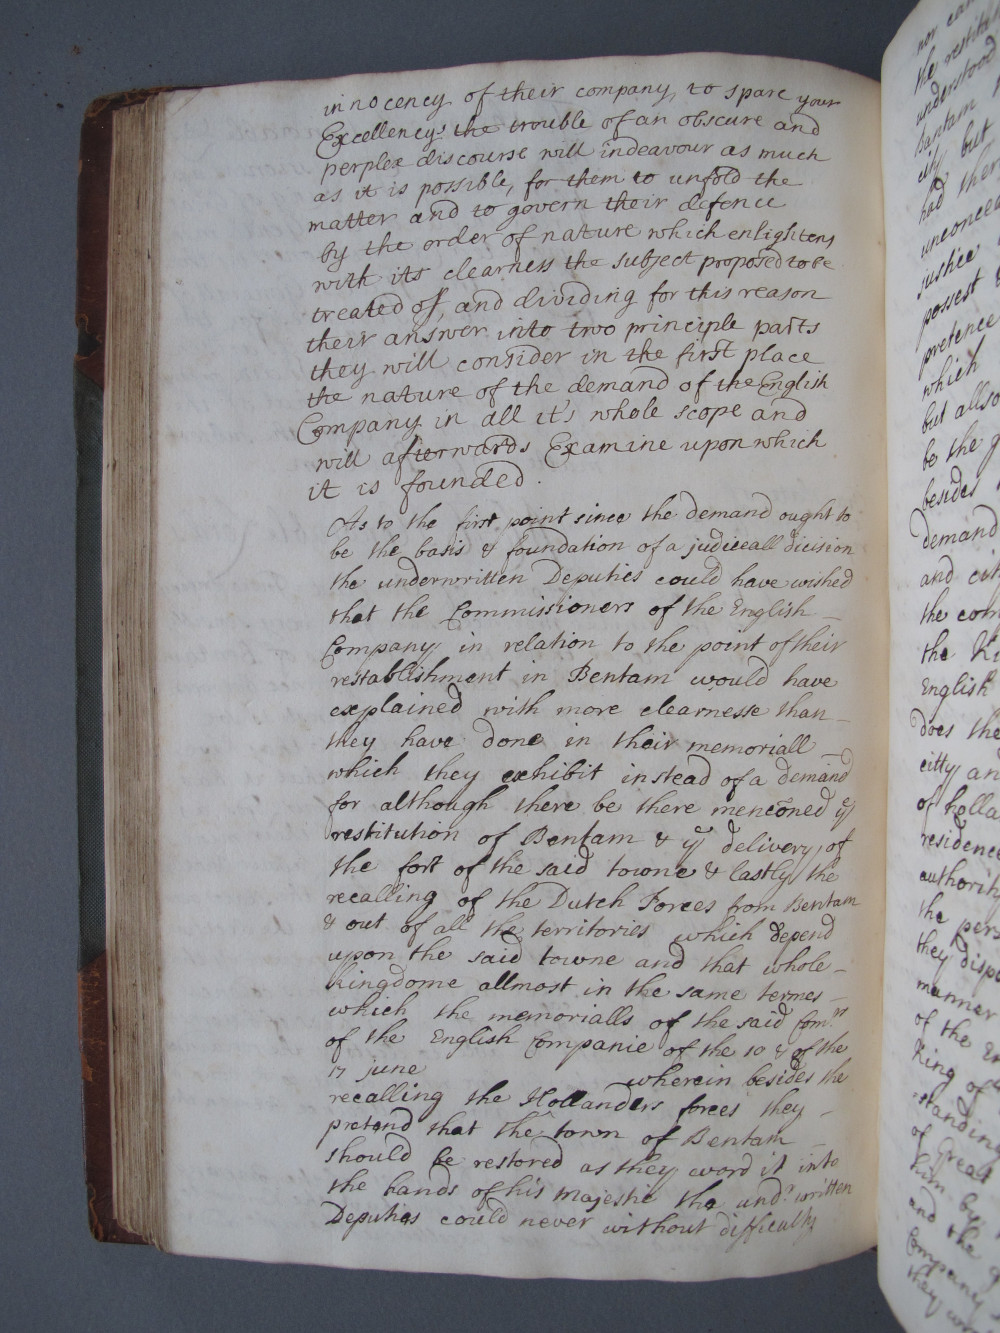 innocency of their company, to spare your
Excellencys the trouble of an obscure and
perplex discourse will indeavour as much
as it is possible, for them to unfold the
matter and to govern their defence
by the order of nature which enlightens
with its clearness the subject proposed to be
treated of, and dividing for this reason
their answer into two principle parts
they will consider in the first place
the nature of the demand of the English
Company in all it's whole scope and
will afterwards Examine upon which
it is founded.
As to the first point since the demand ought to
be the basis & foundation of a judiceall dicision
the underwritten Deputies could have wished
that the Commissioners of the English
Company in relation to the point of their
restablishment in Bentam would have
explained with more clearnesse than
they have done in their memoriall
which they exhibit instead of a demand
for although there be there mencõned ye
restitution of Bentam & ye delivery of
the fort of the said towne & lastly the
recalling of the Dutch Forces from Bentam
& out of all the territories which depend
upon the said towne and that whole
kingdome allmost in the same termes
which the memorialls of the said Comrs
of the English Companie of the 10 & of the
17 june wherein besides the
recalling the Hollanders forces they
pretend that the town of Bentam
should be restored as they word it into
the hands of his majestie the undr written
Deputies could never without difficulty
nor can
the restit
understood
Bantam
city but
had ther
unconcer
justice
possest
pretence
which
but allso
be the
besides
demand
and cit
the com
the Ki
English
does the
citty an
of holla
residence
authority
the pers
they dispo
manner
of the En
King of
standing
of Great
him by
and the
Company
they wo